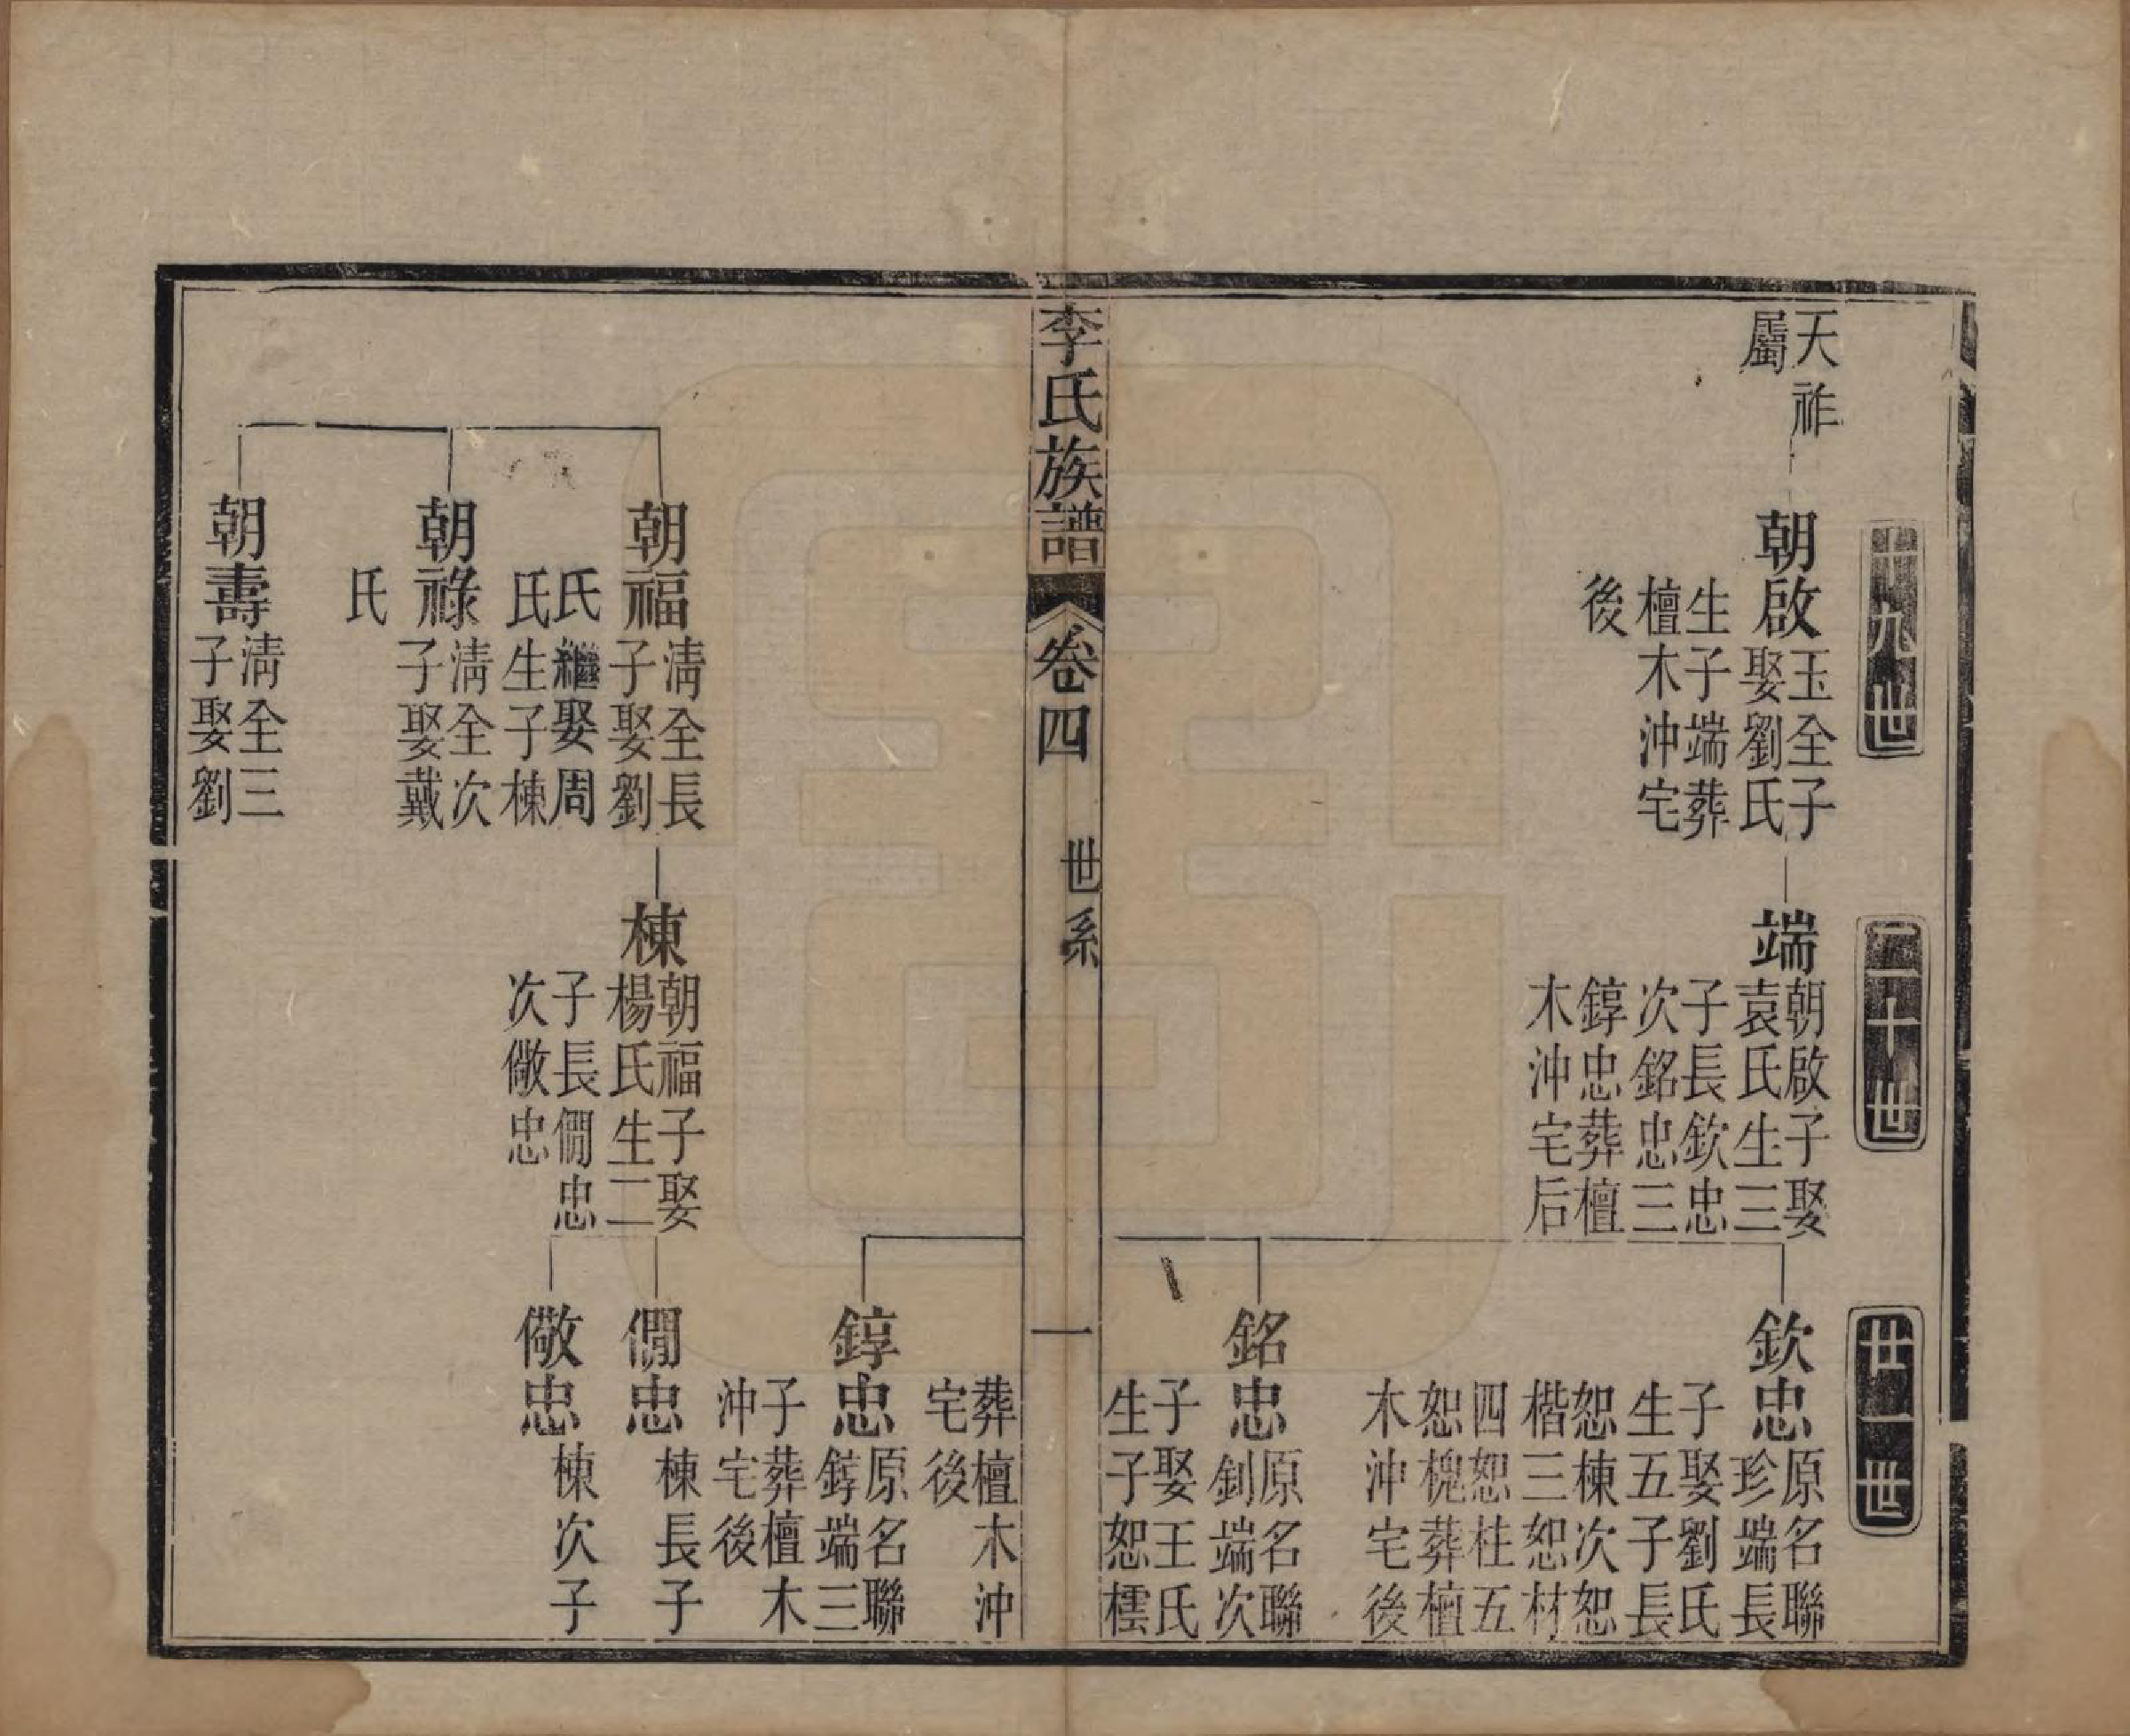 十九世
二十世
廿一世
天祚
屬
朝啟
玉全子
娶劉氏
生子端葬
檀木沖宅
後
端
朝啟子娶
袁氏生三
子長欽忠
次銘忠三
錞忠葬檀
木沖宅后
欽忠
原名聯
珍端長
子娶劉氏
生五子長
恕棟次恕
楷三恕材
四恕桂五
恕槐葬檀
木沖宅後
銘忠
原名聯
釗端次
子娶王氏
生子恕橒
李氏族譜
卷四
世系
一
葬檀木沖
宅後
錞忠
原名聯
錞端三
子葬檀木
沖宅後
朝福
淸全長
子娶劉
氏繼娶周
氏生子棟
棟
朝福子娶
楊氏生二
子長僩忠
次儆忠
僩忠
棟長子
儆忠
棟次子
朝祿
淸全次
子娶戴
氏
朝壽
淸全三
子娶劉